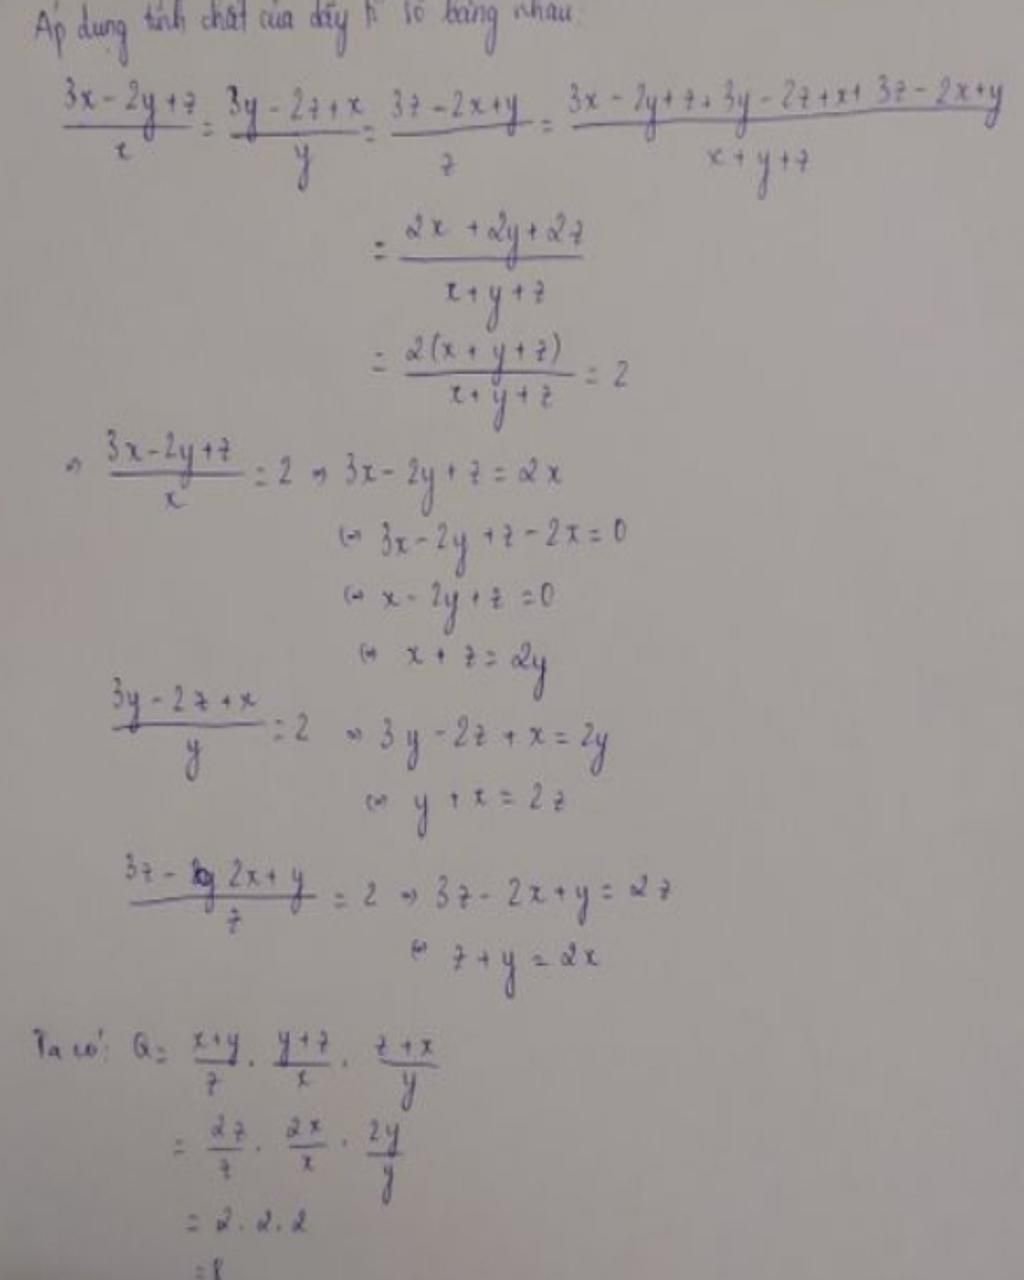 Áp dụng tính chất của dãy tỉ số bằng nhau:
(3x - 2y + z)/x = (3y - 2z + x)/y = (3z - 2x + y)/z = (3x - 2y + z + 3y - 2z + x + 3z - 2x + y)/(x + y + z)
= (2x + 2y + 2z)/(x + y + z)
= 2(x + y + z)/(x + y + z) = 2
⇒ (3x - 2y + z)/x = 2 ⇒ 3x - 2y + z = 2x
⇔ 3x - 2y + z - 2x = 0
⇔ x - 2y + z = 0
⇔ x + z = 2y
(3y - 2z + x)/y = 2 ⇒ 3y - 2z + x = 2y
⇔ y + x = 2z
(3z - 2x + y)/z = 2 ⇒ 3z - 2x + y = 2z
⇔ z + y = 2x
Ta có: Q = (x+y)/z . (y+z)/x . (z+x)/y
= 2z/z . 2x/x . 2y/y
= 2.2.2
= 8